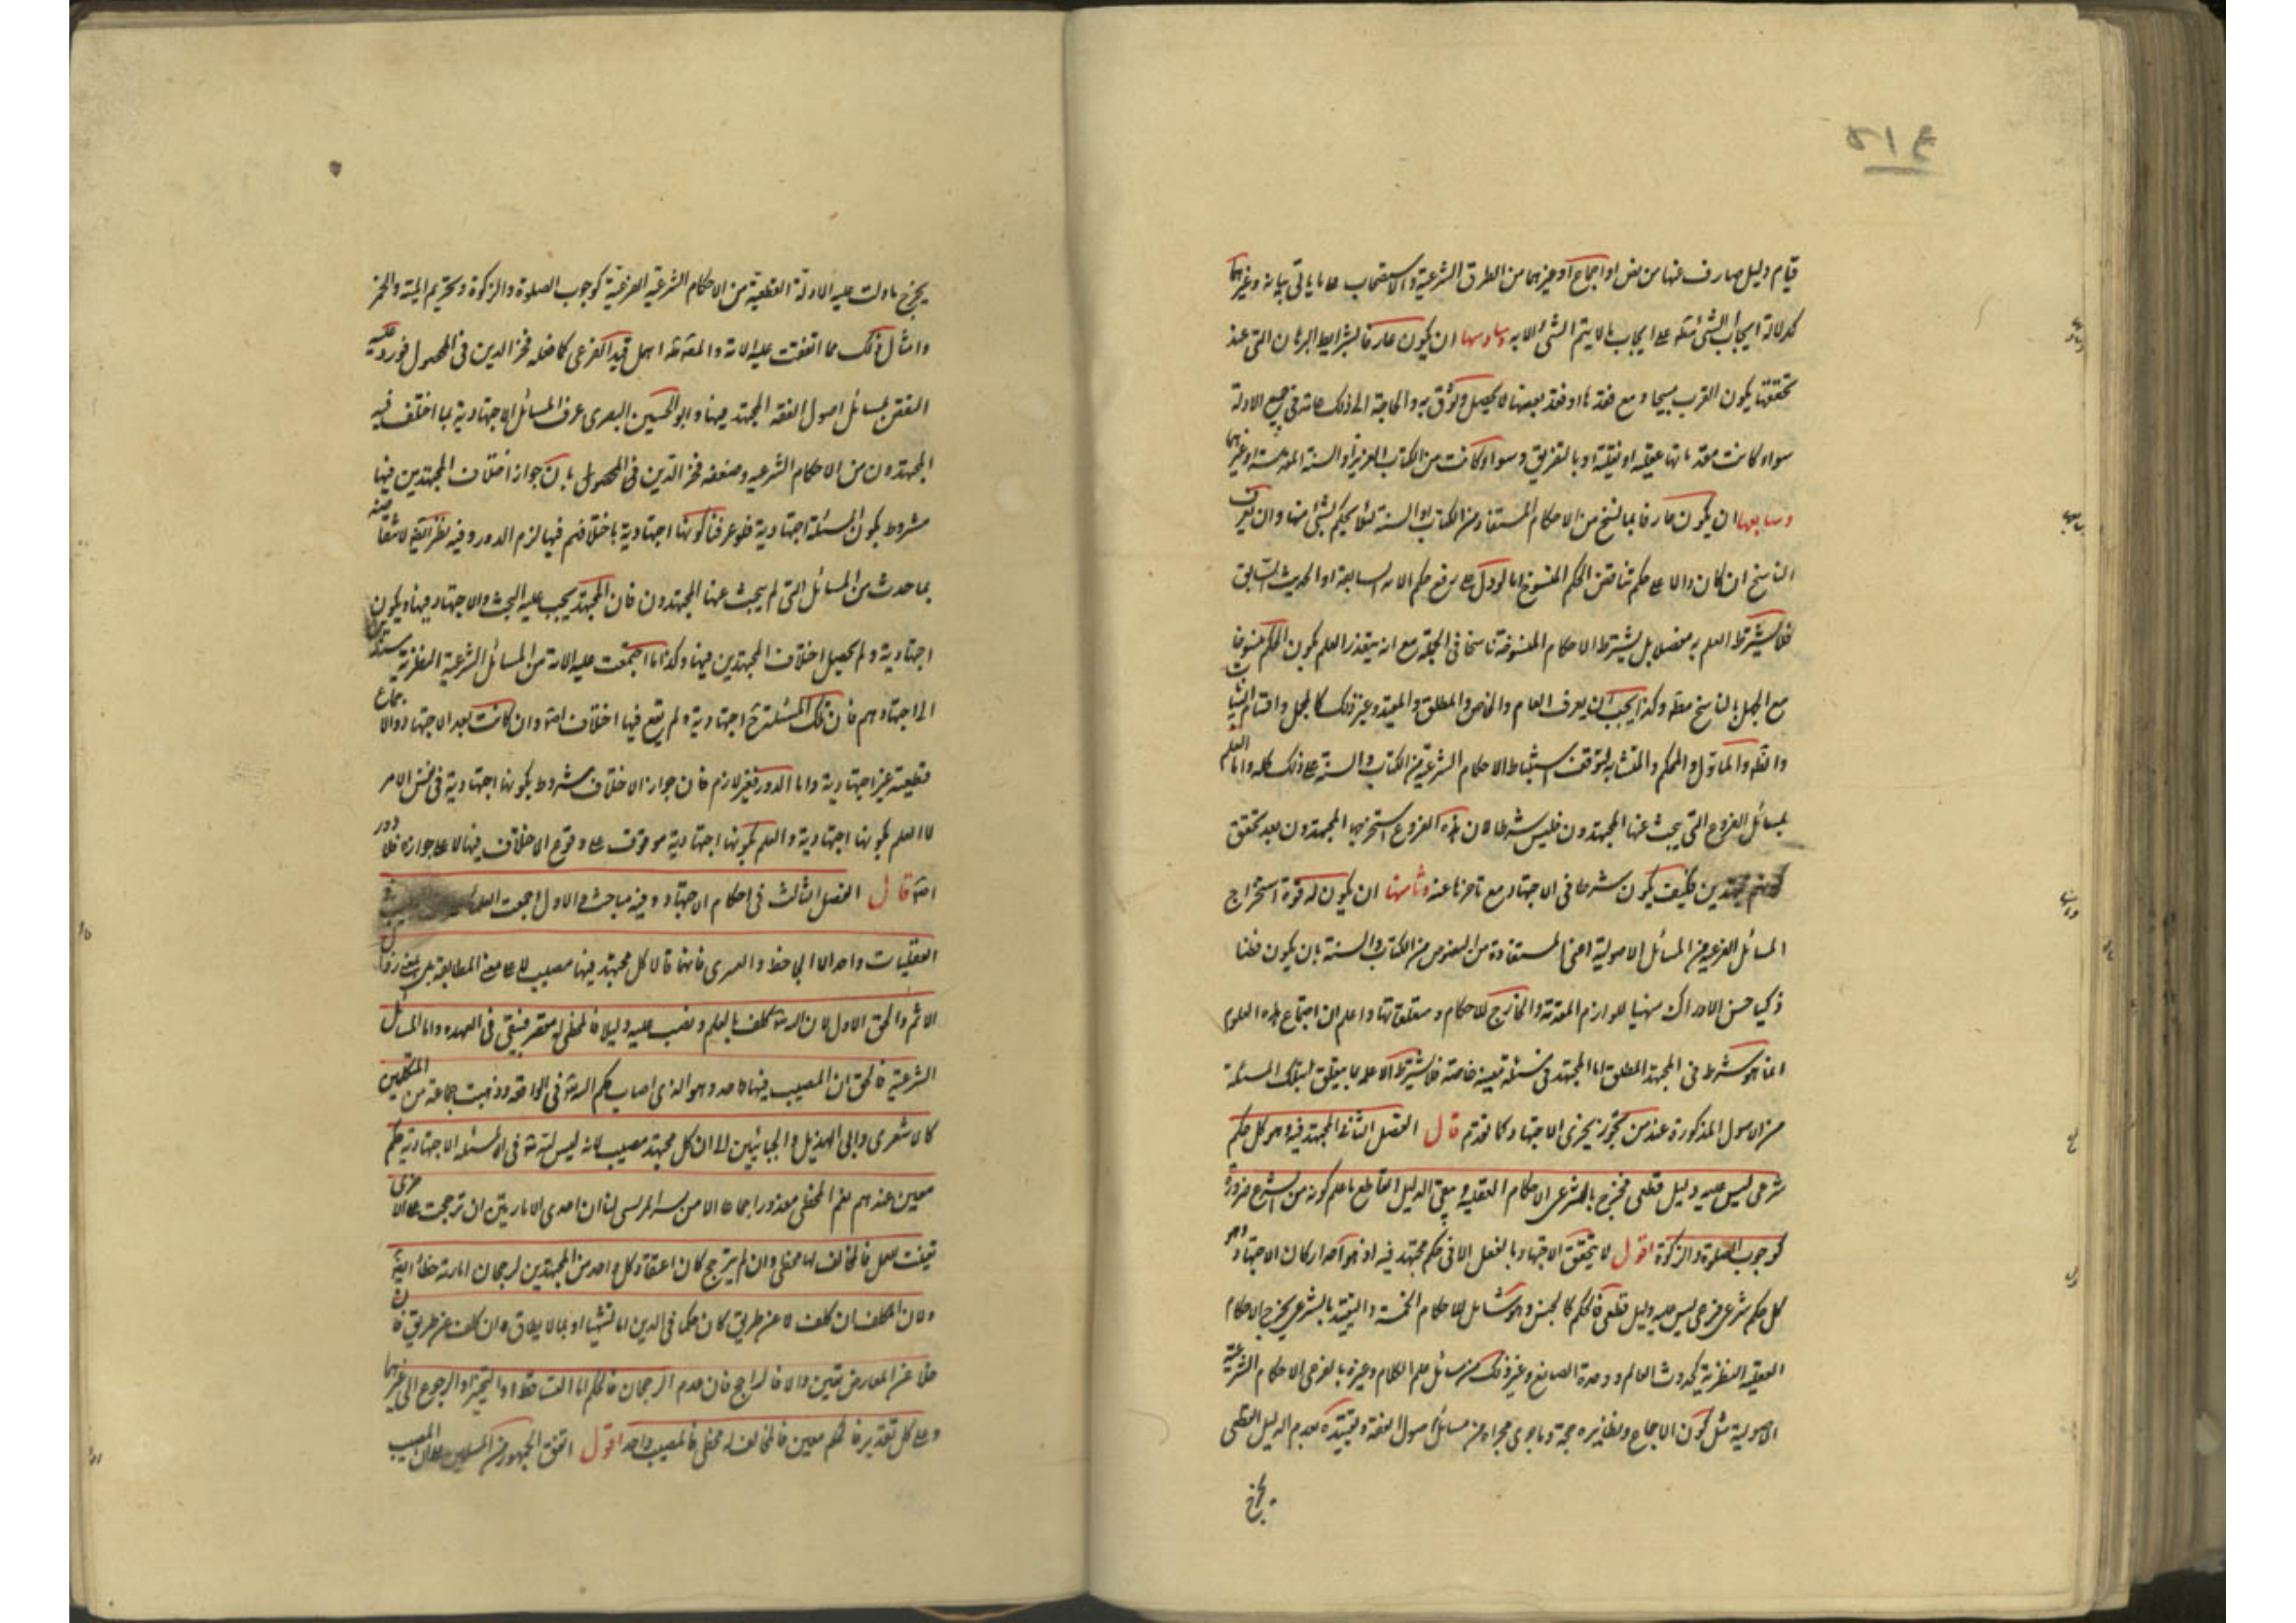 ٥١٤
قيام دليل صارف عنها من نص او اجماع او غيرهما من الطرق الشرعية والاستصحاب على ما ياتي بيانه وغيرهما
كدلالة ايجاب الشئ مثله على ايجاب ما لا يتم الشئ الا به وسادسها ان يكون عارفا بشرايط البرهان التي عند
تحققها يكون القرب مع فقدها او فقد بعضها لا يحصل وثوق به والحاجة الى ذلك عامة في جميع الادلة
سواء كانت مقدماتها عقلية او نقلية او بالتفريق وسواء كانت من الكتاب العزيز او السنة المقدسة او غيرهما
وسابعها ان يكون عارفا بما نسخ من الاحكام المستفادة من الكتاب او السنة لئلا يحكم بشئ منها وان يعرف
الناسخ ان كان دالا على حكم يناقض الحكم المنسوخ اما لو دل على رفع حكم الاية السابقة او الحديث السابق
فلا يشترط العلم به مفصلا بل يشترط الاحكام المنسوخة ناسخا في الجملة مع انه يتعذر العلم بكون الحكم منسوخا
مع الجهل بالناسخ مطلقا وكذا يجب ان يعرف العام والخاص والمطلق والمقيد وغير ذلك كالمجمل واقسام البيان
والظاهر والماول والمحكم والمتشابه لتوقف استنباط الاحكام الشرعية من الكتاب والسنة على ذلك كله واما العلم
بمسائل الفروع التي يبحث عنها المجتهدون فليس شرطا لان هذه الفروع استخرجها المجتهدون بعد تحقق
كونهم مجتهدين فكيف يكون شرطا في الاجتهاد مع تاخرها عنه وثامنها ان يكون له قوة استخراج
المسائل الفرعية من المسائل الاصولية اعني المستفادة من النصوص من الكتاب والسنة بان يكون فطنا
ذكيا حسن الادراك مهنيا للوازم المقدمة والمخارج للاحكام ومتعلقاتها واعلم ان اجتماع هذه العلوم
انما هو شرط في المجتهد المطلق اما المجتهد في مسئلة معينة خاصة فلا يشترط الا علمه بما يتعلق بتلك المسئلة
من الاصول المذكورة عند من يجوز تجزى الاجتهاد كما تقدم قال الفصل الثاني المجتهد فيه وهو كل حكم
شرعي ليس عليه دليل قطعي فخرج بالشرعي الاحكام العقلية وبنفي الدليل القاطع ما علم كونه من الشرع ضرورة
كوجوب الصلوة والزكوة اقول لا يتحقق الاجتهاد بالفعل الا في حكم مجتهد فيه اذ هو احد اركان الاجتهاد وهو
كل حكم شرعي فرعي ليس عليه دليل قطعي فالحكم كالجنس وهو شامل للاحكام الخمسة والتقييد بالشرعي يخرج الاحكام
العقلية النظرية كحدوث العالم ووحدة الصانع وغير ذلك من مسائل علم الكلام وغيره بالفرعي الاحكام الشرعية
الاصولية مثل كون الاجماع ونظائره حجة وما جرى مجراه من مسائل اصول الفقه وتقييده بعدم الدليل القطعي
يخرج
يخرج ما دلت عليه الادلة القطعية من الاحكام الشرعية الفرعية كوجوب الصلوة والزكوة وتحريم الميتة والخمر
وامثال ذلك مما اتفقت عليه الامة والمص اهمل قيد الفرعي كما فعله فخر الدين في المحصول فورد عليه
النقض بمسائل اصول الفقه المجتهد فيها وابو الحسين البصرى عرف المسائل الاجتهادية بما اختلف فيه
المجتهدون من الاحكام الشرعية وضعفه فخر الدين في المحصول بان جواز اختلاف المجتهدين فيها
مشروط بكون المسئلة اجتهادية فلو عرفنا كونها اجتهادية باختلافهم فيها لزم الدور وفيه نظر
بما حدث من المسائل التي لم يبحث عنها المجتهدون فان المجتهد يجب عليه البحث والاجتهاد فيها ويكون
اجتهادية ولم يحصل اختلاف المجتهدين فيها وكذا ما اجتمعت عليه الامة من المسائل الشرعية النظرية مستندين
الى اجتهادهم فان تلك المسئلة اجتهادية ولم يقع فيها اختلاف اصلا وان كانت بعد الاجتهاد والاجماع
قطعية غير اجتهادية واما الدور فغير لازم فان جواز الاختلاف مشروط بكونها اجتهادية في نفس الامر
لا العلم بكونها اجتهادية والعلم بكونها اجتهادية موقوف على وقوع الاختلاف فيها لا على جوازه فلا دور
اصلا قال الفصل الثالث في احكام الاجتهاد وفيه مباحث الاول اجمعت العلماء
العقليات واحد الا الجاحظ والعنبرى فانهما قالا كل مجتهد فيها مصيب لا على معنى المطابقة بل بمعنى زوال
الاثم والحق الاول لان الله تعالى كلف بالعلم ونصب عليه دليلا فالمخطى له مقصر فيبقى في العهدة واما المسائل
الشرعية فالحق ان المصيب فيها واحد وهو الذي اصاب حكم الله تعالى في الواقعة وذهبت جماعة من المتكلمين
كالاشعرى وابي الهذيل والجبائيين الى ان كل مجتهد مصيب لانه ليس لله تعالى في المسئلة الاجتهادية حكم
معين عندهم نعم المخطى معذور اجماعا الا من بشر المريسي لنا ان احدى الامارتين ان ترجحت على الاخرى
تعينت للعمل فالمخالف لها مخطى وان لم يترجح كان اعتقاد كل واحد من المجتهدين لرجحان امارته خطأ ايضا
ولان المكلف ان كلف لا عن طريق كان حكما في الدين اما تشهيا او بما لا يطاق وان كلف عن طريق فان
خلا عن المعارض تعين والا فالراجح فان عدم الرجحان فالحكم اما التساقط او التخيير او الرجوع الى غيرهما
وعلى كل تقدير فالحكم معين فالمخالف له مخطى فالمصيب واحد اقول اتفق الجمهور من المسلمين على ان المصيب